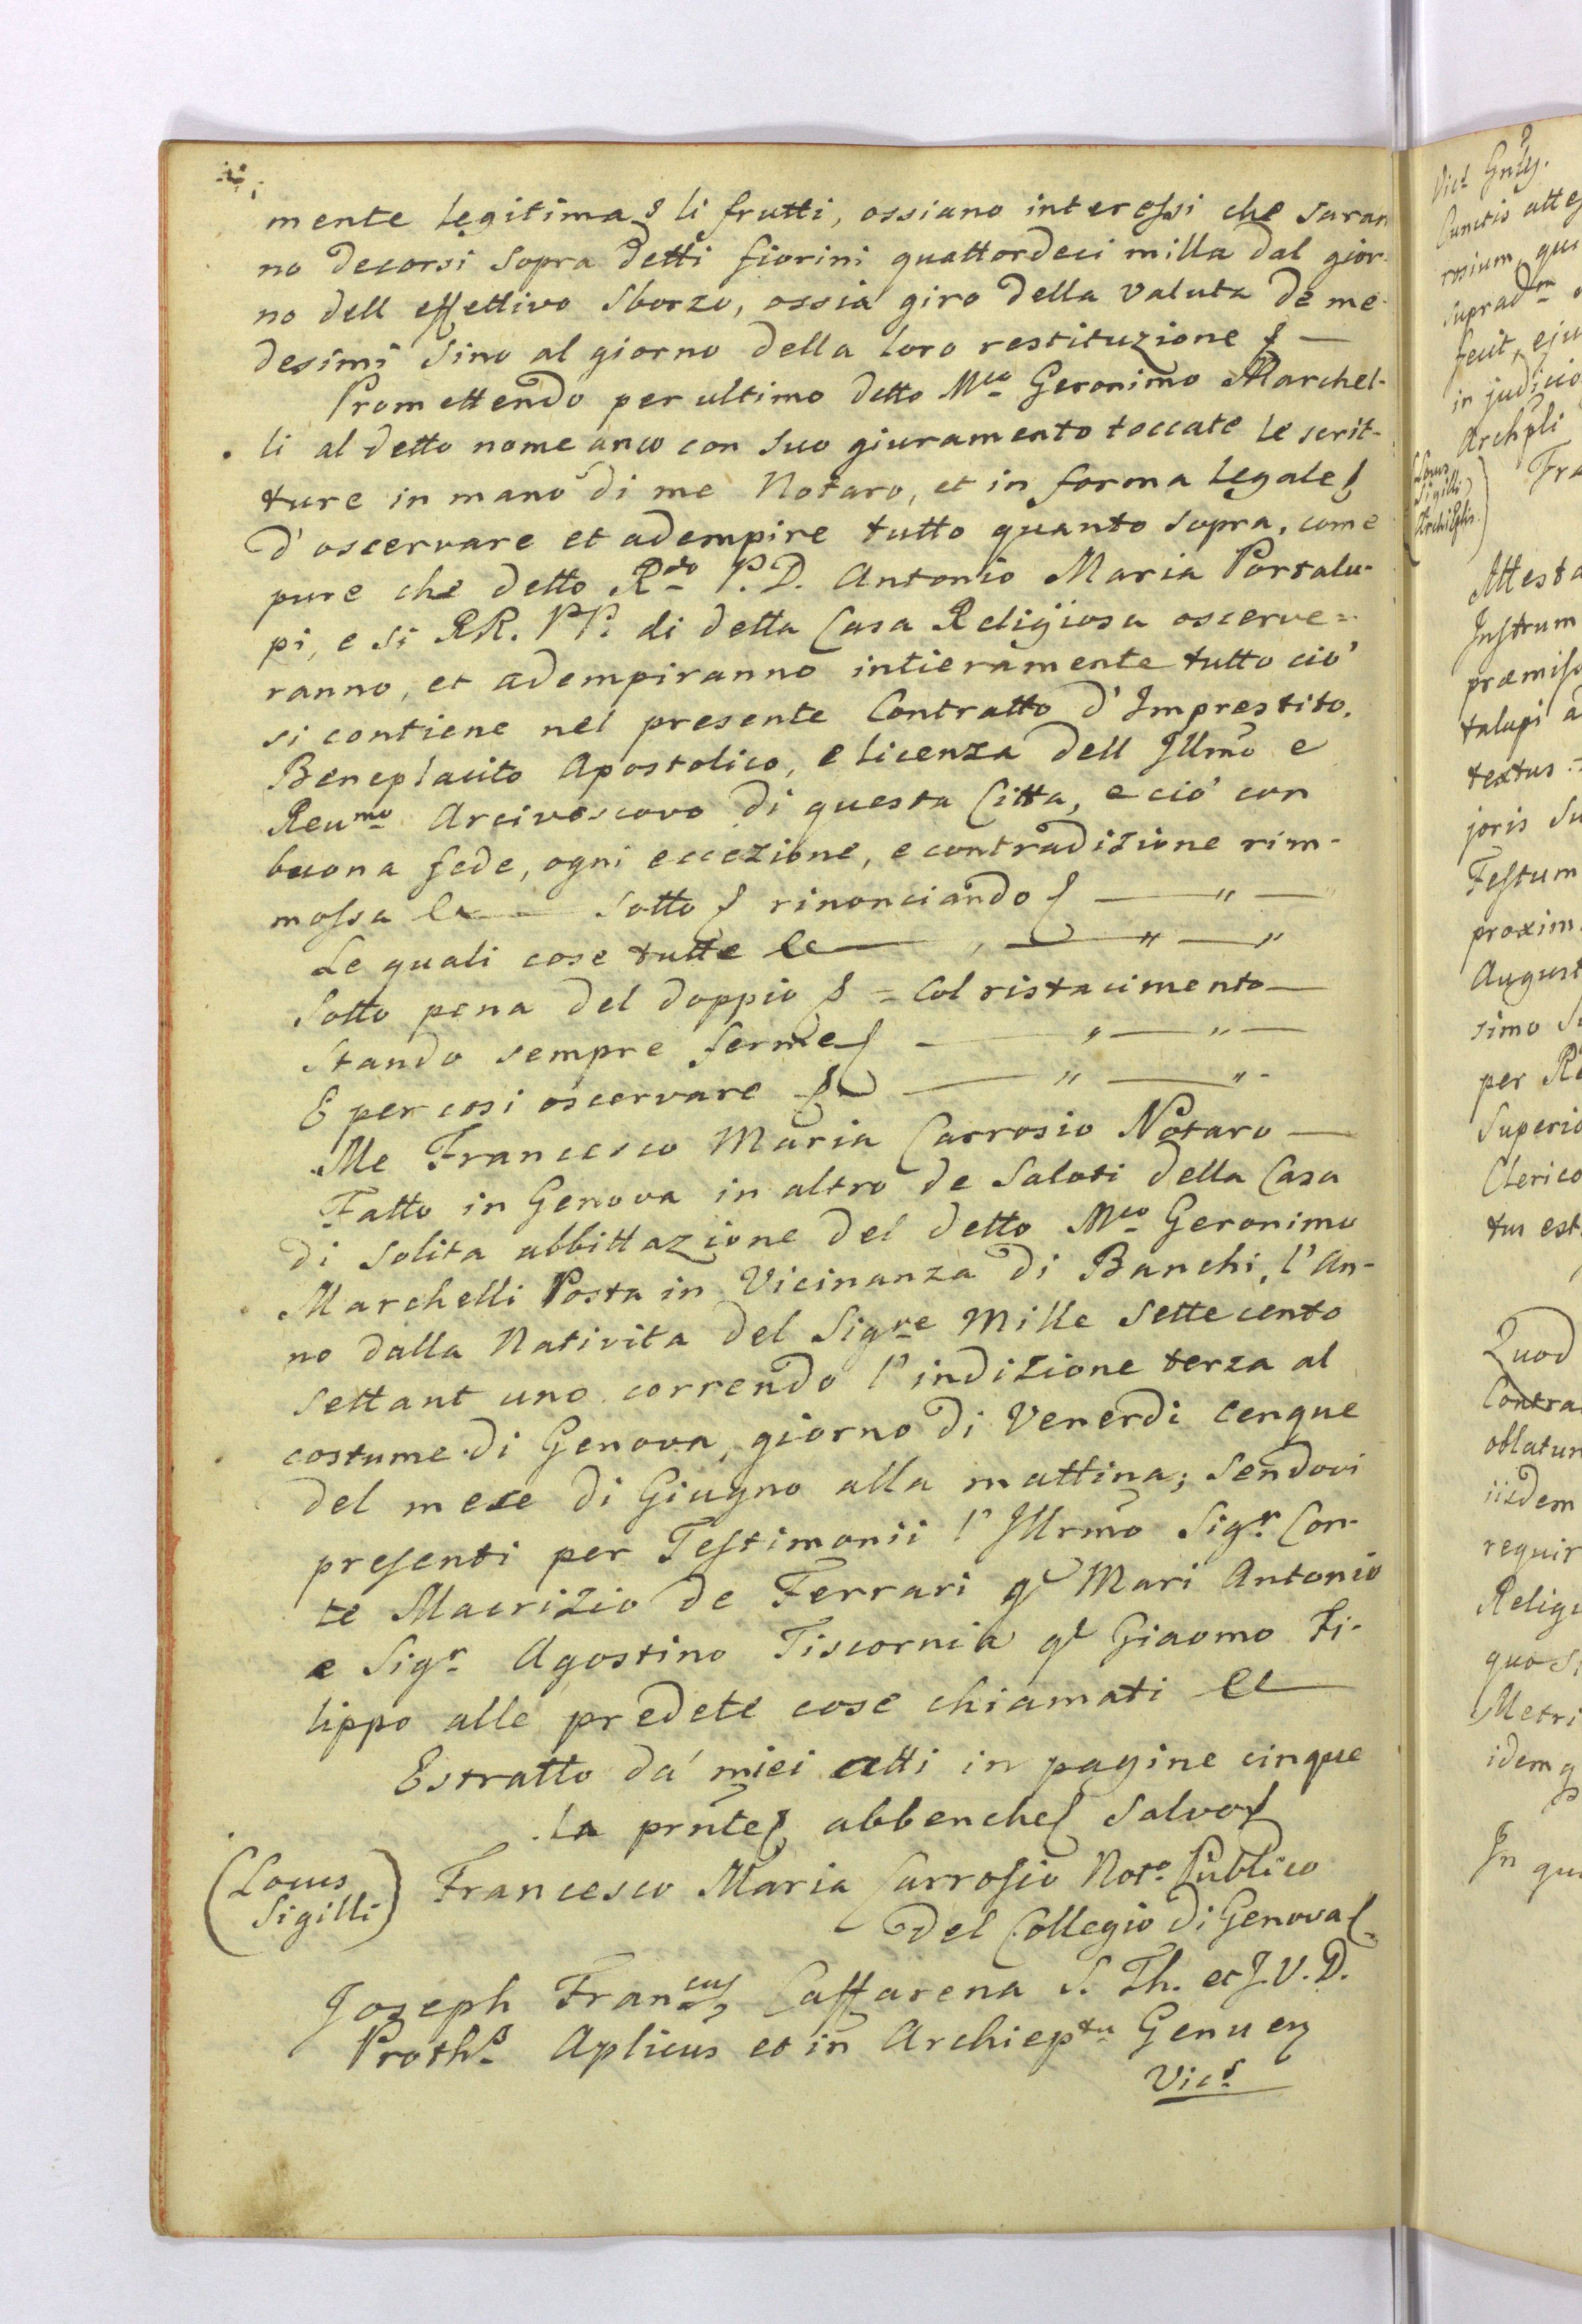 mente legitima § li frutti, ossiano interessi che saran
no decorsi sopra detti fiorini quattordeci milla dal gior-
no dell effettivo sborzo, ossia giro della valuta de me-
desimi sino al giorno della loro restituzione § —
Promettendo per ultimo detto Mco Geronimo Marchel-
li al detto nome anco con suo giuramento toccate le scrit-
ture in mano di me Notaro, et in forma legale §
d'oscervare et adempire tutto quanto sopra, come
pure che detto Rdo P. D. Antonio Maria Portalu-
pi, e si RR. PP. di detta Casa Religiosa oscerve=
ranno, et adempiranno intieramente tutto ciò
si contiene nel presente Contratto d'Imprestito.
Beneplacito Apostolico, e licenza dell Illmo e
Reumo Arcivescovo di questa Citta, e ciò con
buona fede, ogni eccezione, e contradizione rim-
mossa &c — sotto § rinonciando § — " — "
Le quali cose tutte &c — , — " — "
Sotto pena del doppio § = Col ristacimento —
Stando sempre ferme § — " — " —
E per cosi oscervare § — " — " -
Me Francesco Maria Carrosio Notaro —
Fatto in Genova in altro de Saloti della Casa
di solita abbittazione del detto Mco Geronimo
Marchelli Posta in Vicinanza di Banchi, l'An-
no dalla Nativita del Sigre Mille Settecento
settant uno correndo l'indizione terza al
costume di Genova, giorno di Venerdi cenque
del mese di Giugno alla mattina; sendovi
presenti per Testimonii l'Illrmo Sigr Con-
te Maurizio de Ferrari qd Mari Antonio
e Sigr Agostino Tiscornia qd Giaomo Fi-
lippo alle predete cose chiamati &c —
Estratto da' miei atti in pagine cinque
la prnte § abbenche § salvo §
(Locus Francesco Maria Carrosio Noto Publico
Sigilli) del Collegio di Genova §
Joseph Francus Caffarena S. Th. et J. V. D.
Proths Aplicus et in Archieptu Genuen
Vics
Vics Gnlis.
Cunctis attes
rosium, qui
supradm
fecit, eju
in judicio
Archpli
(Locus
Sigilli
Archieplis.) Fra
Attesta
Instrum
præmiss
talupi a
textus
joris Su
Festum
proxim
August
simo S
per R
Superio
Clerico
tus est
Quod
Contra
oblatum
iisdem
requir
Religi
quo S
Metri
idem q
In qu